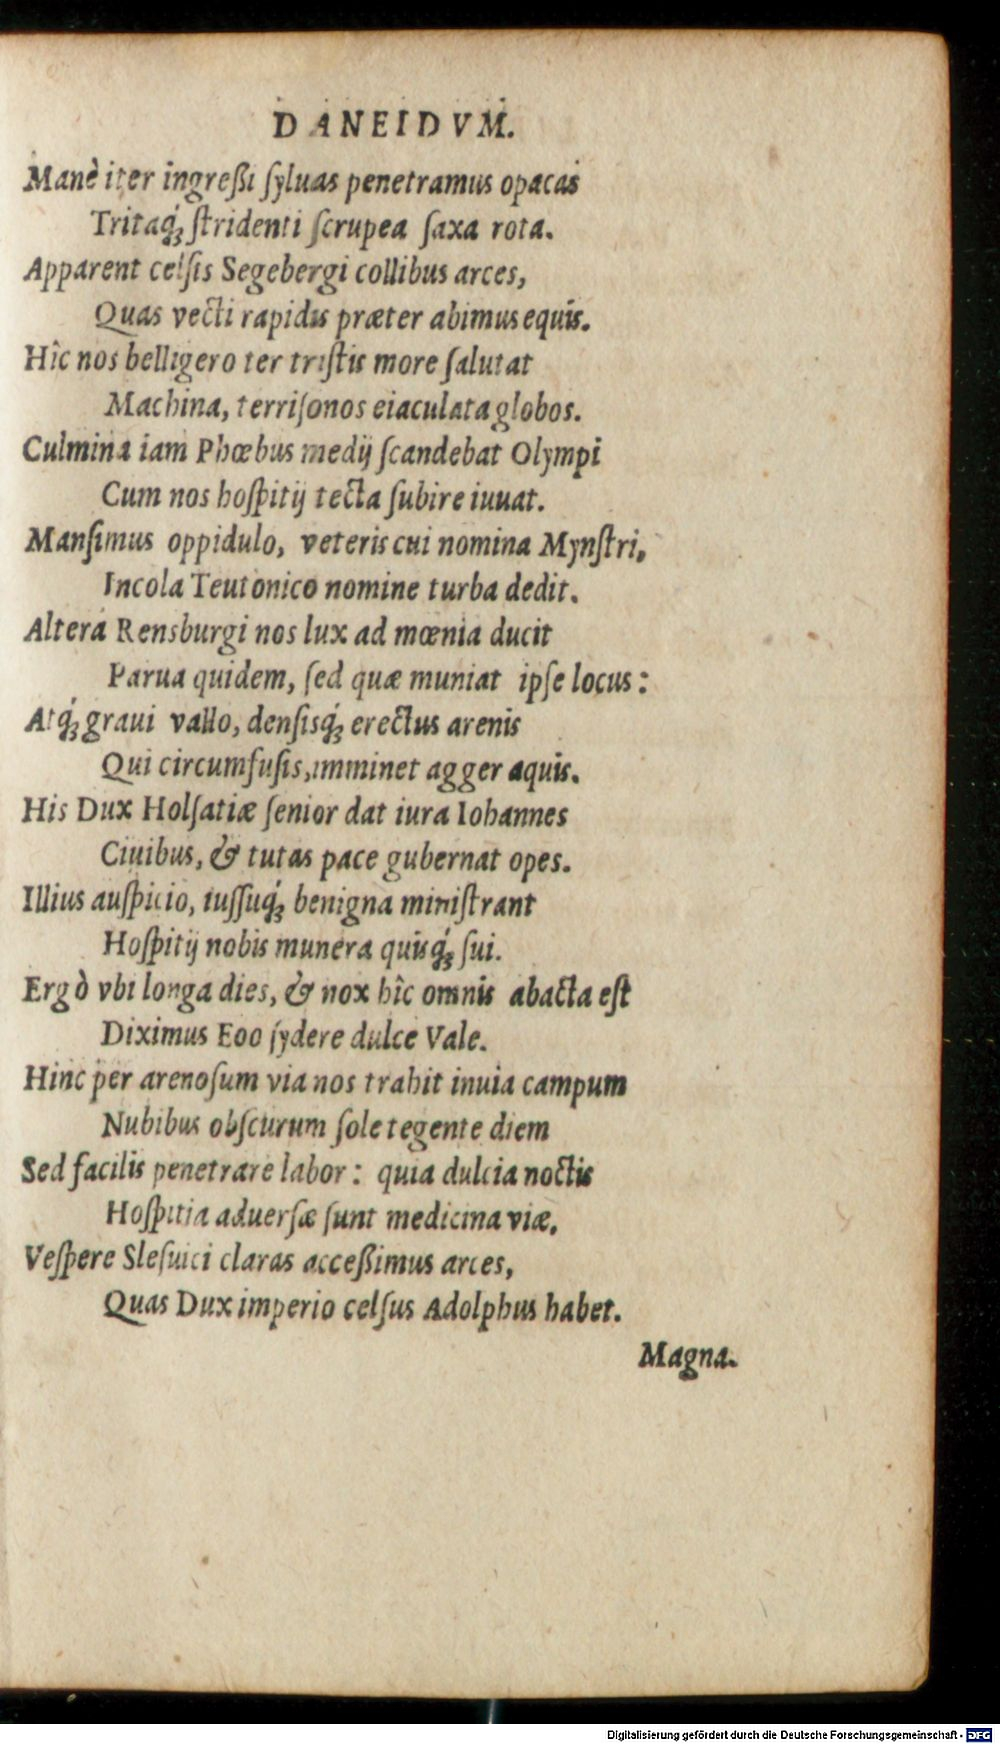 DANEIDVM.
Manè iter ingreßi ſyluas penetramus opacas
Tritaq́; ſtridenti ſcrupea ſaxa rota.
Apparent celſis Segebergi collibus arces,
Quas vecti rapidis præter abimus equis.
Hîc nos belligero ter triſtis more ſalutat
Machina, terriſonos eiaculata globos.
Culmina iam Phœbus medij ſcandebat Olympi
Cum nos hoſpitij tecta ſubire iuuat.
Manſimus oppidulo, veteris cui nomina Mynſtri,
Incola Teutonico nomine turba dedit.
Altera Rensburgi nos lux ad mœnia ducit
Parua quidem, ſed quæ muniat ipſe locus:
Atq́; graui vallo, denſisq́; erectus arenis
Qui circumfuſis, imminet agger aquis.
His Dux Holſatiæ ſenior dat iura Iohannes
Ciuibus, & tutas pace gubernat opes.
Illius auſpicio, iuſſuq́; benigna miniſtrant
Hoſpitij nobis munera quiſq́; ſui.
Ergò vbi longa dies, & nox hîc omnis abacta eſt
Diximus Eoo ſydere dulce Vale.
Hinc per arenoſum via nos trahit inuia campum
Nubibus obſcurum ſole tegente diem
Sed facilis penetrare labor: quia dulcia noctis
Hoſpitia aduerſæ ſunt medicina viæ,
Veſpere Sleſuici claras acceßimus arces,
Quas Dux imperio celſus Adolphus habet.
Magna.
Digitalisierung gefördert durch die Deutsche Forschungsgemeinschaft - DFG